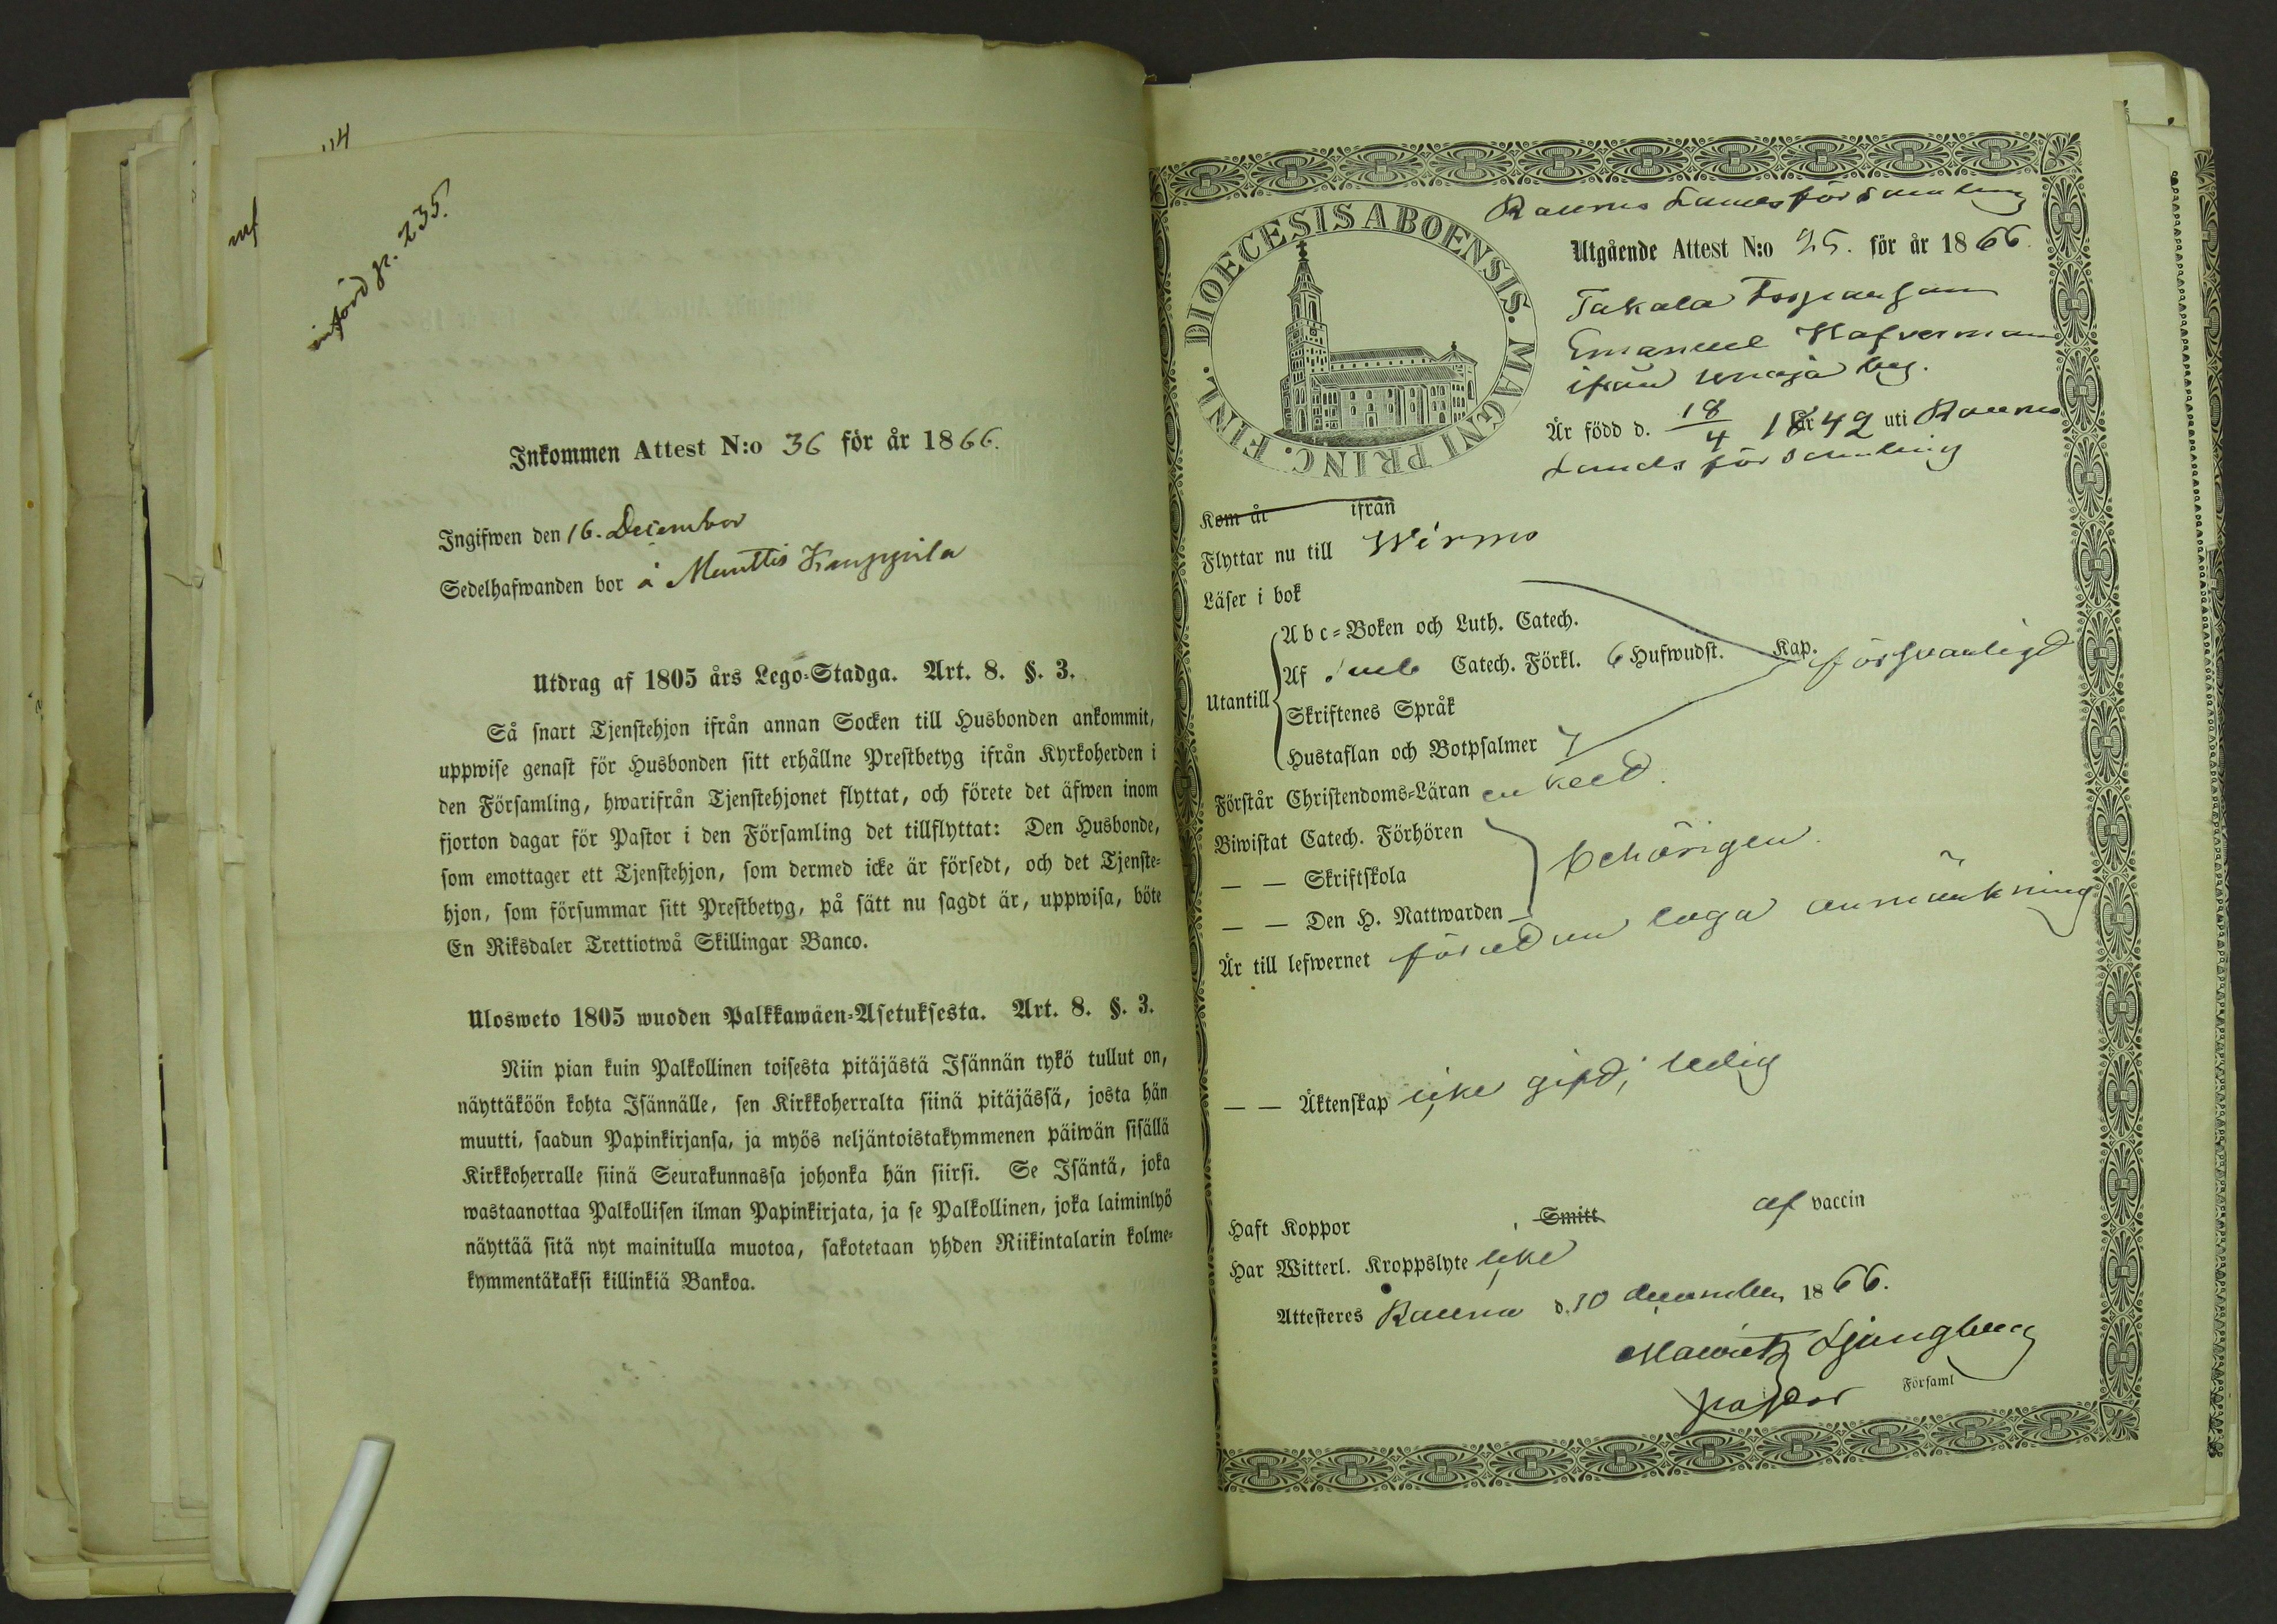 114
införd p. 235.
Inkommen Attest N:o 36 för år 1866.
Ingifwen den 16. December
Sedelhafwanden bor å Manttis Knuppila
Utdrag af 1805 års Lego-Stadga. Art. 8. §. 3.
Så snart Tjenstehjon ifrån annan Socken till Husbonden ankommit,
uppwise genast för Husbonden sitt erhållne Prestbetyg ifrån Kyrkoherden i
den Församling, hwarifrån Tjenstehjonet flyttat, och förete det äfwen inom
fjorton dagar för Pastor i den Församling det tillflyttat: Den Husbonde,
som emottager ett Tjenstehjon, som dermed icke är försedt, och det Tjenste-
hjon, som försummar sitt Prestbetyg, på sätt nu sagdt är, uppwisa, böte
En Riksdaler Trettiotwå Skillingar Banco.
Ulosweto 1805 wuoden Palkkawäen-Asetuksesta. Art. 8. §. 3.
Niin pian kuin Palkollinen toisesta pitäjästä Isännän tykö tullut on,
näyttäköön kohta Isännälle, sen Kirkkoherralta siinä pitäjässä, josta hän
muutti, saadun Papinkirjansa, ja myös neljäntoistakymmenen päiwän sisällä
Kirkkoherralle siinä Seurakunnassa johonka hän siirsi. Se Isäntä, joka
wastaanottaa Palkollisen ilman Papinkirjata, ja se Palkollinen, joka laiminlyö
näyttää sitä nyt mainitulla muotoa, sakotetaan yhden Riikintalarin kolme-
kymmentäkaksi killinkiä Bankoa.
Raumo Landsförsamling
DIOECESIS ABOENSIS. MAGNI PRINC. FINL.
Utgående Attest N:o 25. för år 1866.
Takala Torparson
Emanuel Hafverman
ifrån Unaja by.
Är född d. 18/4 år 1849 uti Raumo
Landsförsamling
Kom år ifrån
Flyttar nu till Wirmo
Läser i bok
Utantill
Abc-Boken och Luth. Catech.
Af Catech. Förkl. 6 Hufwudst. Kap. försvarligt
Skriftenes Språk
Hustaflan och Botpsalmer 7
Förstår Christendoms-Läran enkelt.
Biwistat Catech. Förhören
— — Skriftskola behörigen.
— — Den H. Nattwarden
Är till lefwernet förutan laga anmärkning
— — Äktenskap icke gift; ledig
Haft Koppor Smitt af vaccin
Har Witterl. Kroppslyte icke
Attesteres Raumo d. 10 december 1866.
Mauritz Ljungberg
pastor Församl